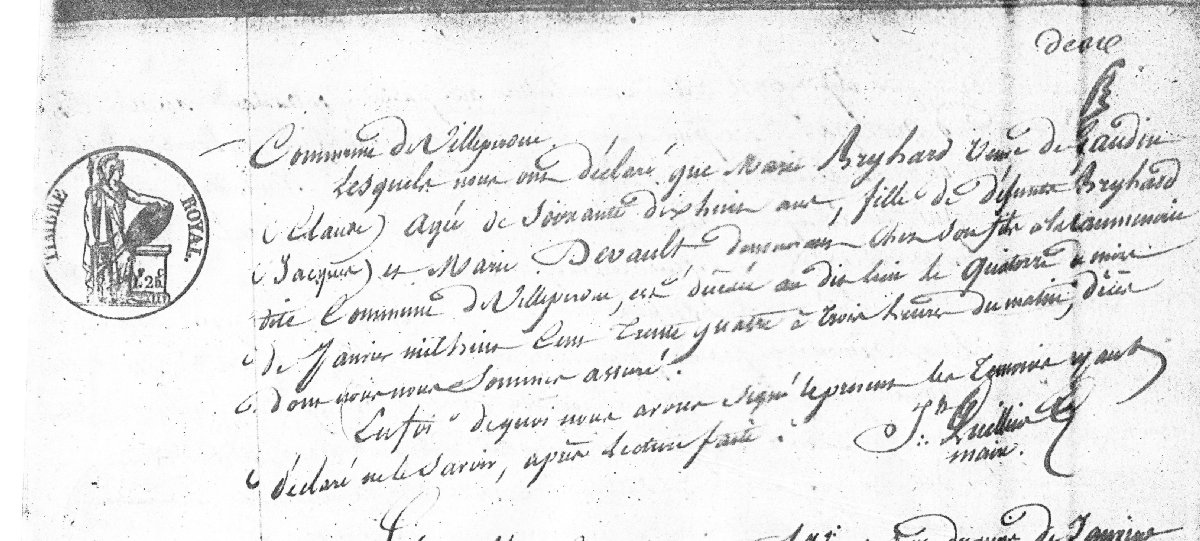 TIMBRE ROYAL.
Commune de Villeperdue
Lesquels nous ont déclaré que Marie Bryhard Veuve de Gaudin
(Claude) Agée de Soixante dix huit ans, fille de défunts Bryhard
(Jacques) et Marie Devault demeurant chez son fils à la
dite Commune de Villeperdue, est décédée au dit lieu le Quatorze du mois
de Janvier mil huit Cent Trente quatre à trois heures du matin, décès
dont nous nous Sommes assuré.
En foi de quoi nous avons signé le présent les Témoins ayant
déclaré ne le Savoir, après lecture faite.
maire.
de Janvier